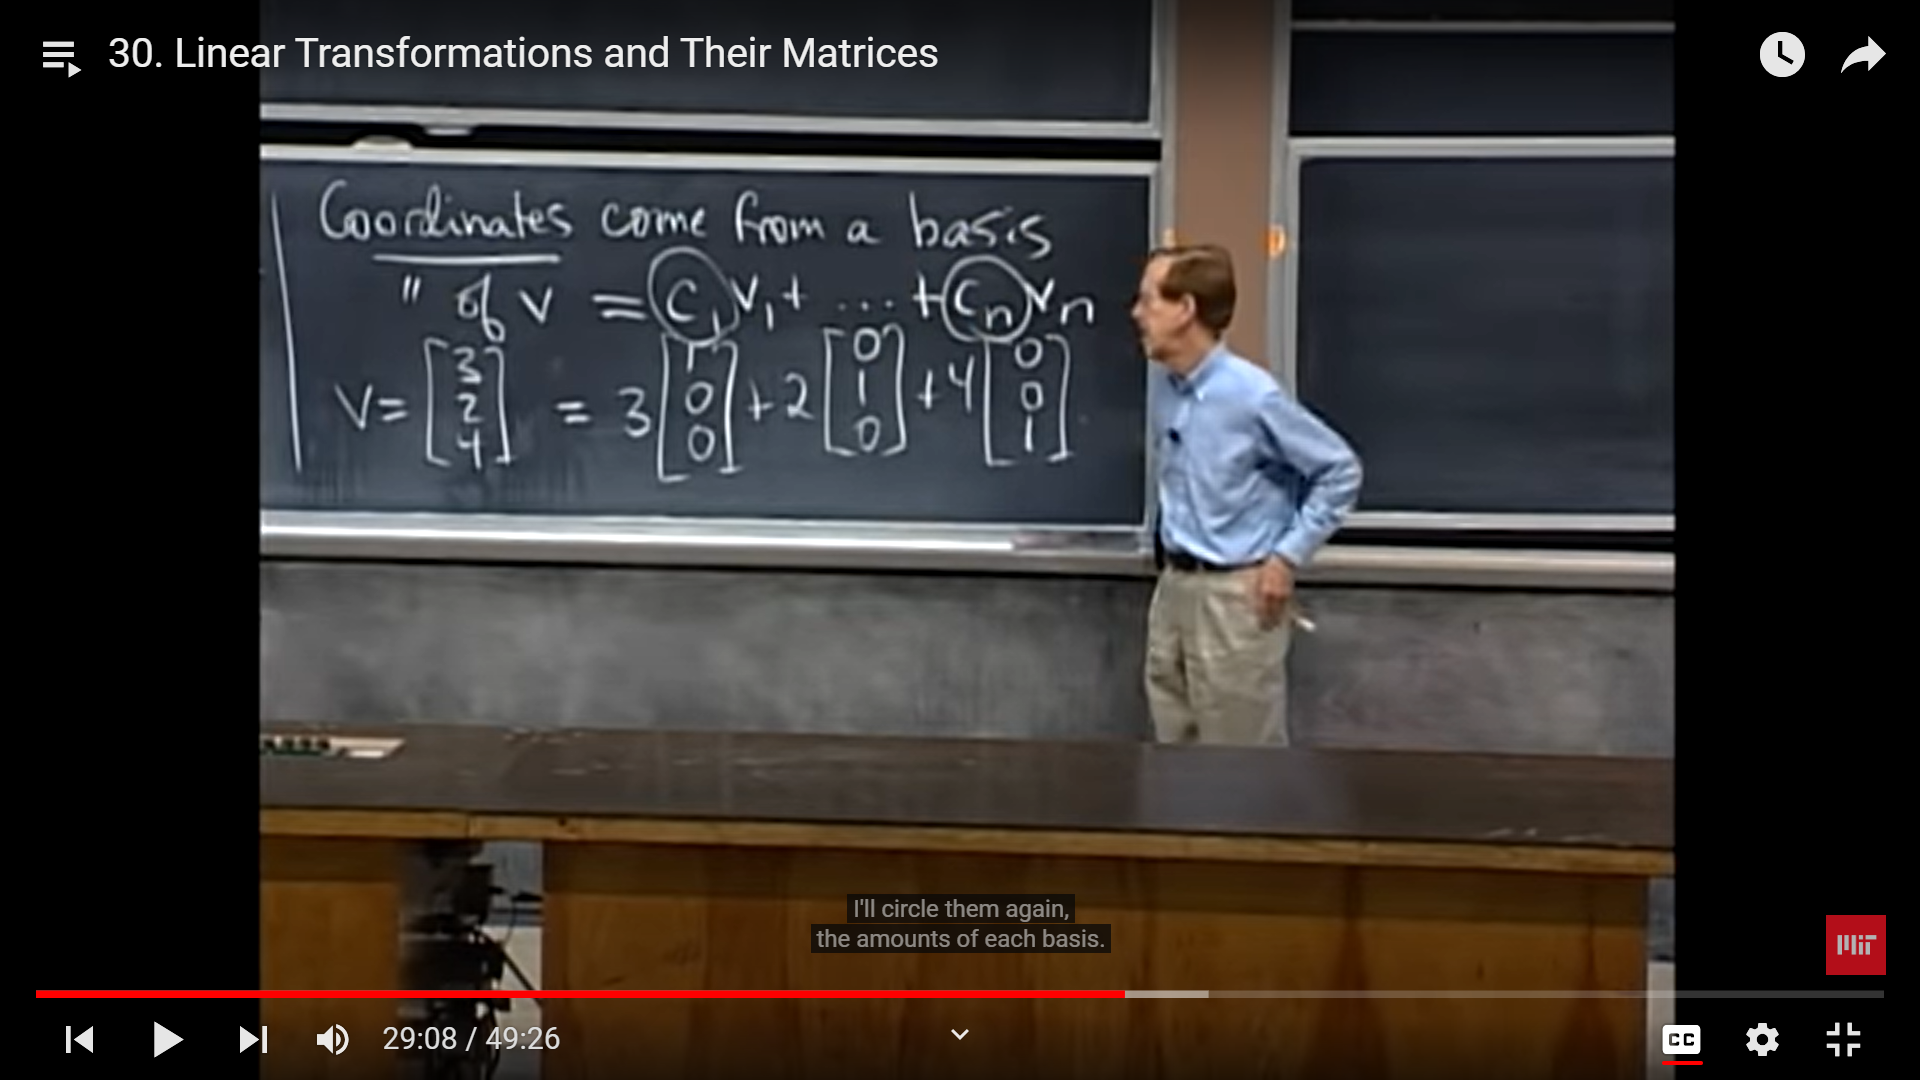 30. Linear Transformations and Their Matrices
Coordinates come from a basis
" of v = c₁v₁ + ... + cₙvₙ
v = [3 2 4] = 3 [1 0 0] + 2 [0 1 0] + 4 [0 0 1]
I'll circle them again,
the amounts of each basis.
MIT
29:08 / 49:26
CC